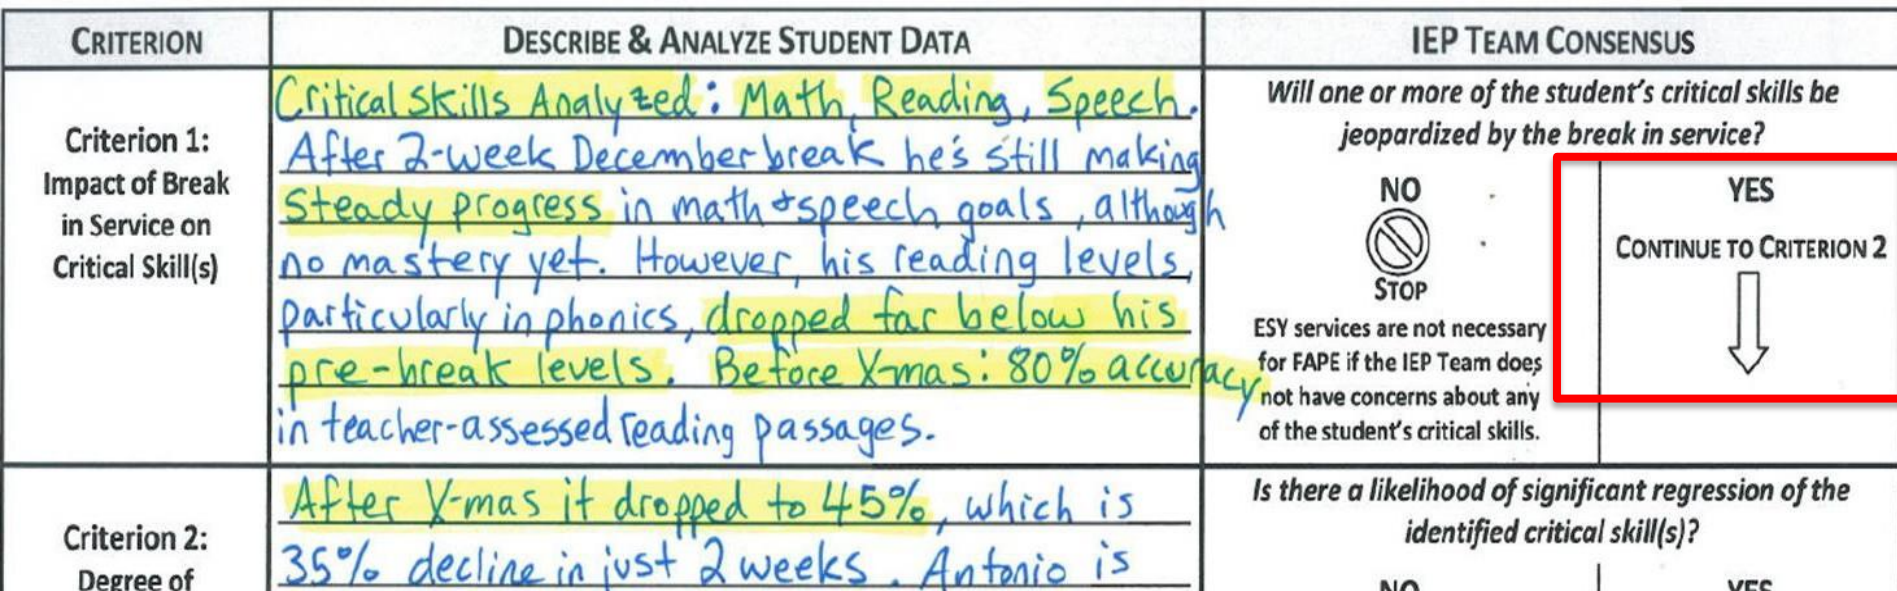 CRITERION
DESCRIBE & ANALYZE STUDENT DATA
IEP TEAM CONSENSUS
Criterion 1:
Impact of Break
in Service on
Critical Skill(s)
Critical Skills Analyzed: Math, Reading, Speech.
After 2-week December break he's still making
steady progress in math + speech goals, although
no mastery yet. However, his reading levels,
particularly in phonics, dropped far below his
pre-break levels. Before X-mas: 80% accuracy
in teacher-assessed reading passages.
Will one or more of the student's critical skills be
jeopardized by the break in service?
NO
STOP
ESY services are not necessary
for FAPE if the IEP Team does
not have concerns about any
of the student's critical skills.
YES
CONTINUE TO CRITERION 2
Criterion 2:
Degree of
After X-mas it dropped to 45%, which is
35% decline in just 2 weeks. Antonio is
Is there a likelihood of significant regression of the
identified critical skill(s)?
NO
YES